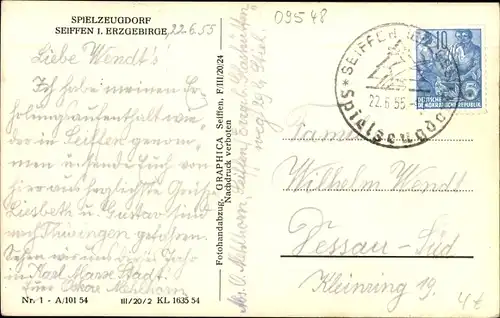 SPIELZEUGDORF
SEIFFEN I. ERZGEBIRGE 22.6.55
Liebe Wendt's!
Ich habe meinen Er-
holungsaufenthalt wie-
der in Seiffen genom-
men und sende Euch von
hier aus herzlichste Grüße
Liesbeth u. Gustav sind
nach Thüringen gefahren.
Sehen wir uns dies Jahr
in Karl Marx Stadt?
Euer Oskar Mehlhorn
Nr. 1 - A/101 54 III/20/2 KL 1635 54
Fotohandabzug, GRAPHICA Seiffen, F/III/20/24
Nachdruck verboten
Abs. O. Mehlhorn, Seiffen, Erzgeb. Glashütten-
weg
09548
SEIFFEN
22.6.55
Spielzeugdorf
10
DEUTSCHE
DEMOKRATISCHE REPUBLIK
5
Familie
Wilhelm Wendt
Dessau-Süd
Kleinring 19.
4€